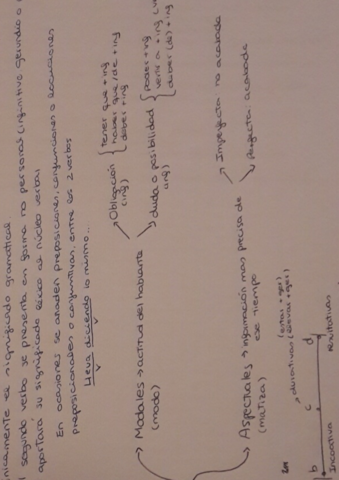 nicamente el significado gramatical
segundo verbo se presenta en forma no personal (infinitivo gerundio o
aportará su significado léxico al núcleo verbal
En ocasiones se anaden preposiciones, conjunciones o locuciones
preposicionales o conjuntivas, entre los 2 verbos
lleva diciendo lo mismo...
Modales → actitud del hablante
(modo)
Obligación
(inf)
tener que + inf
haber que/de + inf
deber + inf
duda o posibilidad
(inf)
poder + inf
venir a + inf
deber (de) + inf
Aspectuales → información más precisa de
(matiza) ese tiempo
Imperfecta: no acabada
perfecta: acabada
(estar + ger)
→ durativas (llevar + ger)
b c d
Incoativa resultativas